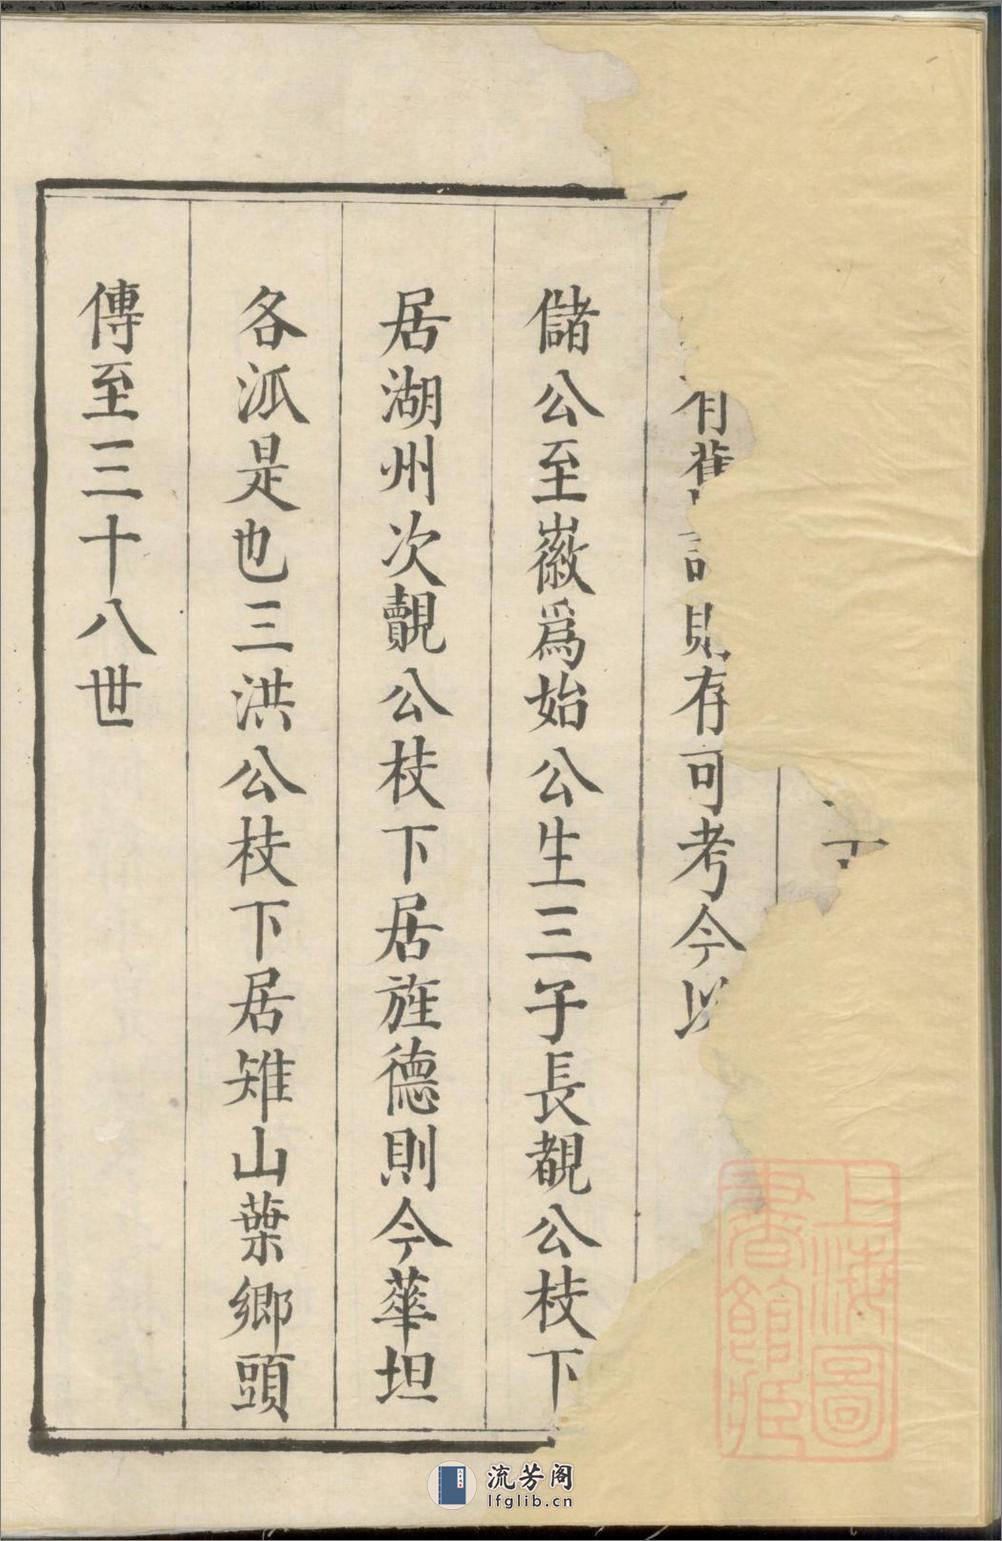 有舊 見存可考今以
儲公至徽爲始公生三子長覩公枝下
居湖州次覿公枝下居旌德則今華坦
各派是也三洪公枝下居雉山葉鄉頭
傳至三十八世
上海圖
書館藏
流芳阁
lfglib.cn